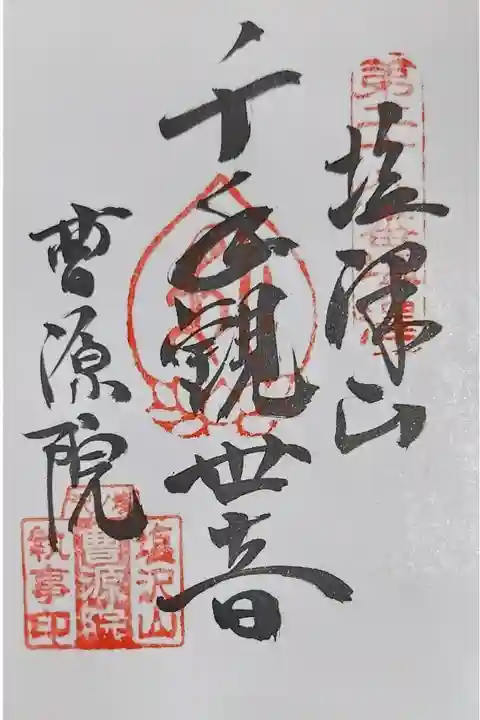 塩澤山
千手觀世音
曹源院
塩沢山
曹源院
執事印